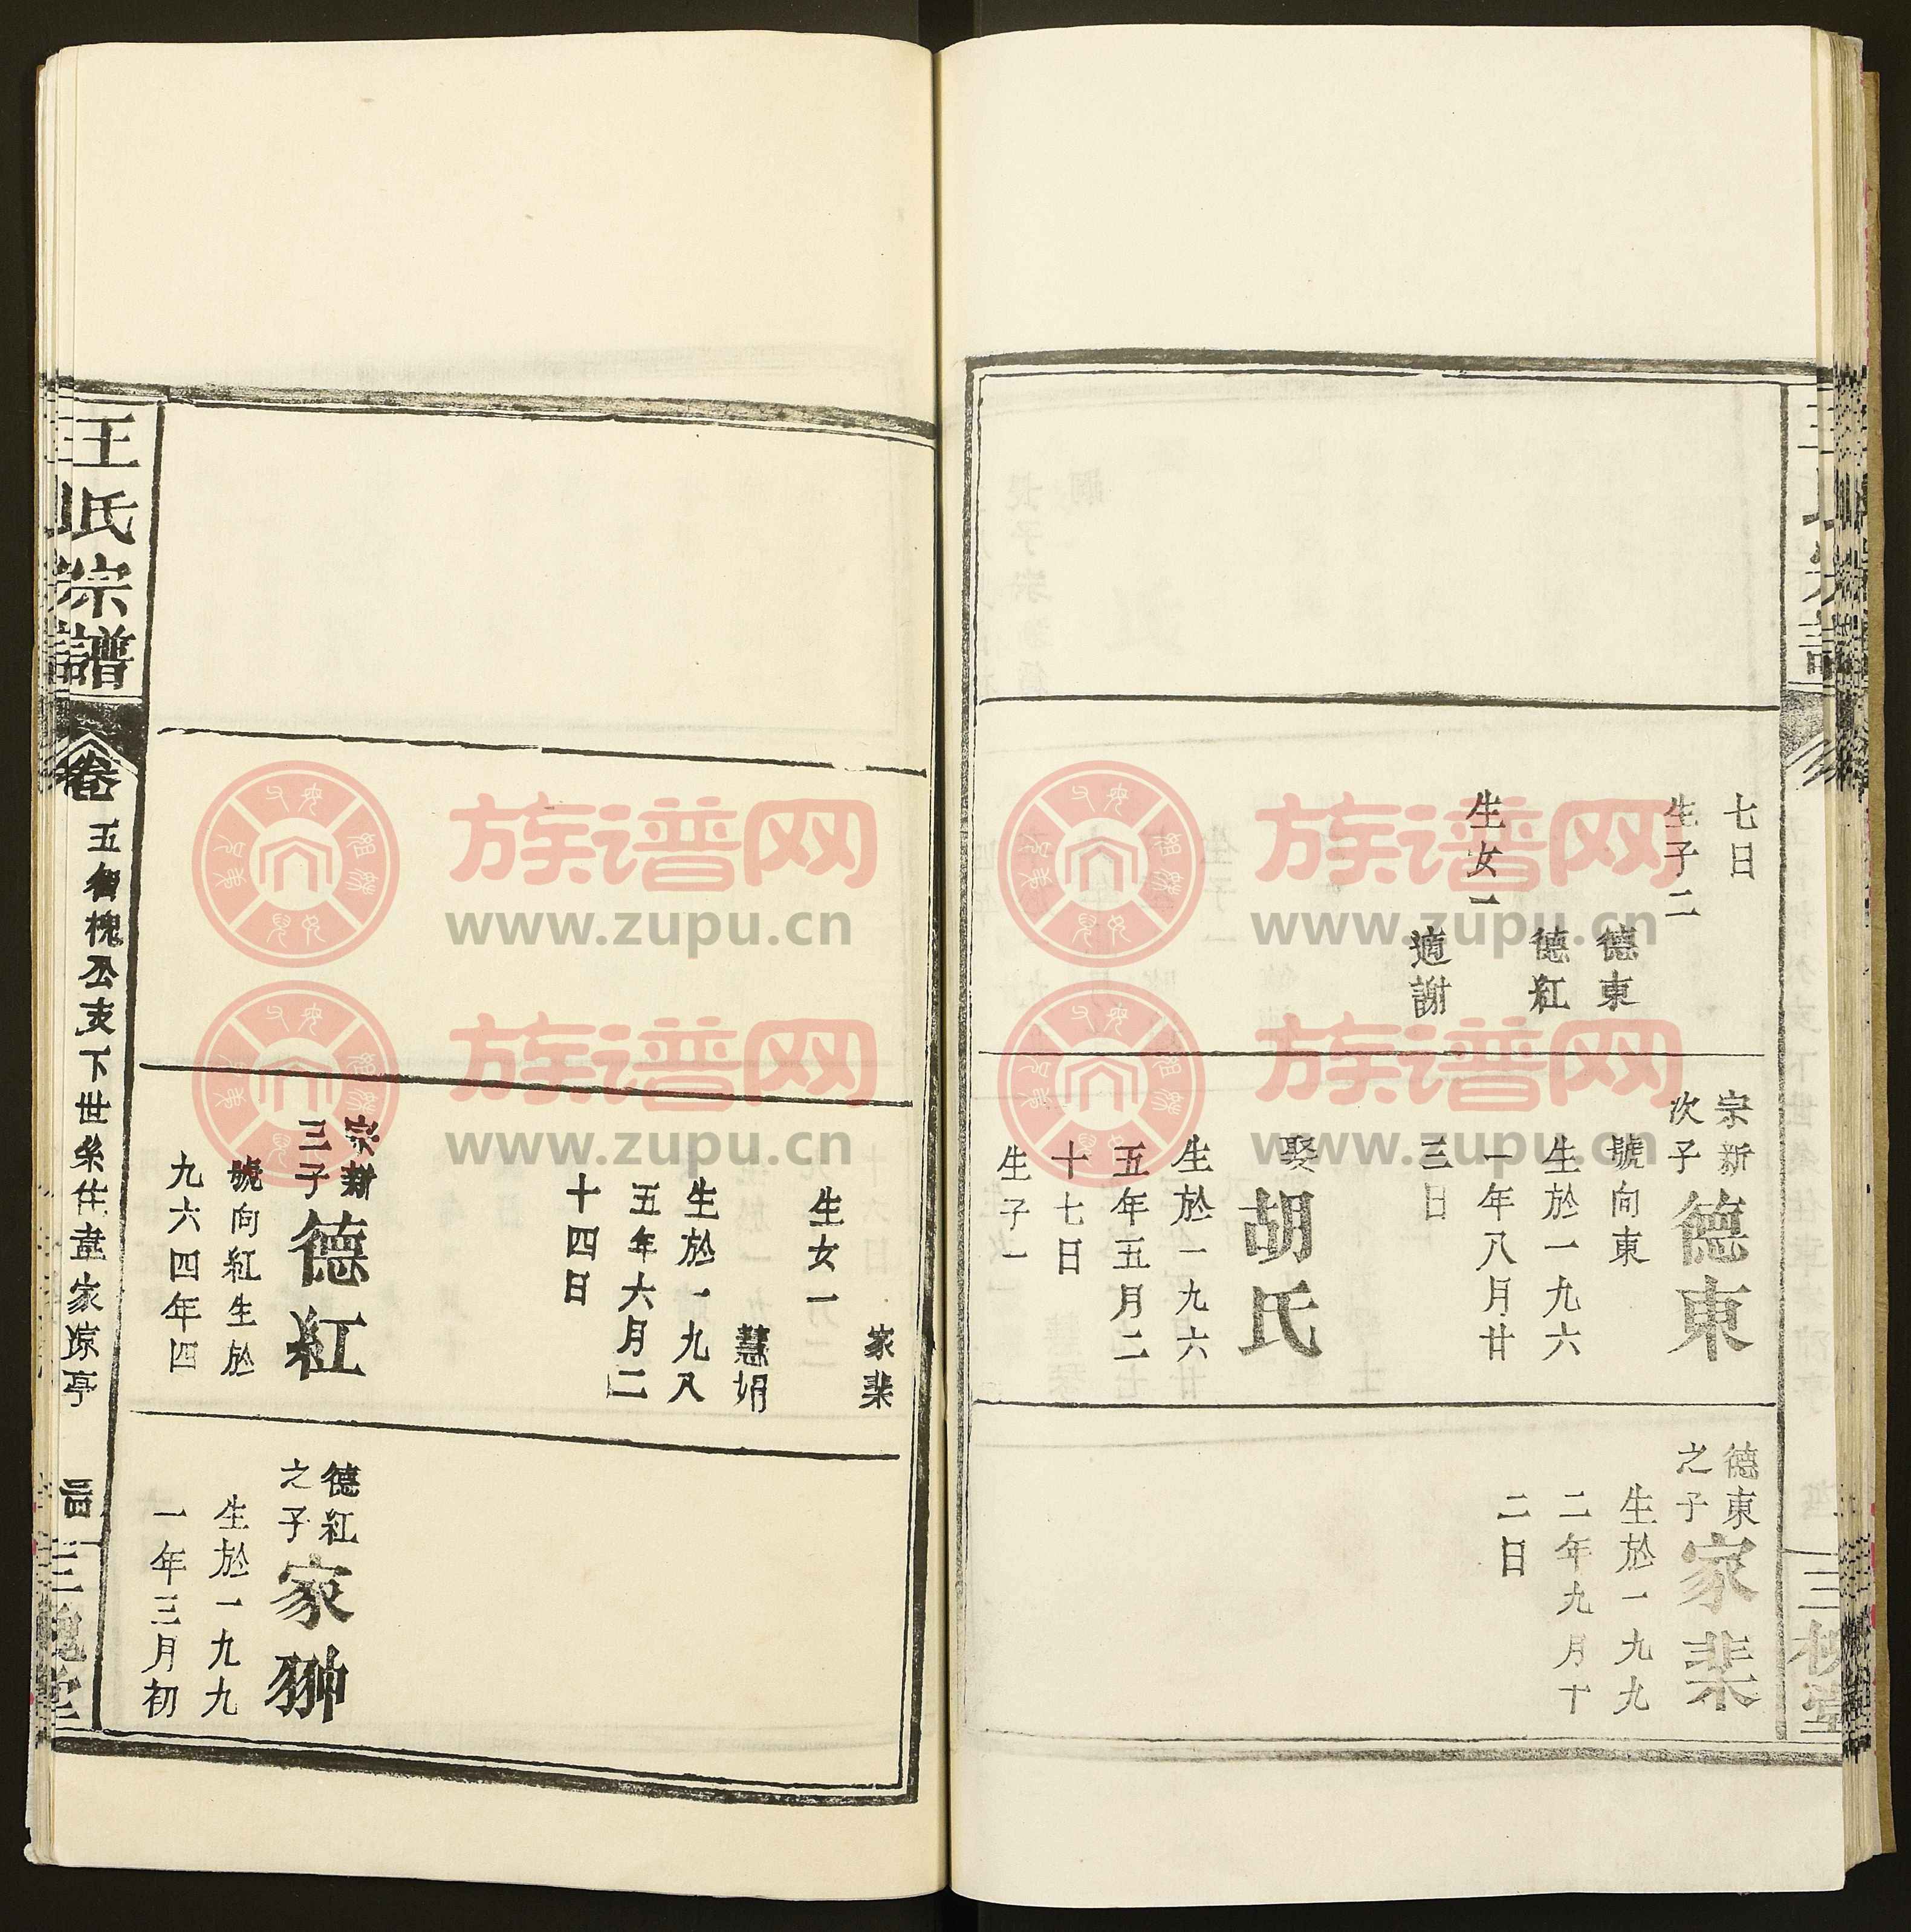 七日
生子二
德東
德紅
生女一
適謝
宗新
次子
德東
號向東
生於一九六
一年八月廿
三日
娶胡氏
生於一九六
五年五月二
十七日
生子一
德東
之子
家棐
生於一九九
二年九月十
二日
三槐堂
家棐
生女一
慧娟
生於一九八
五年六月二
十四日
宗新
三子
德紅
號向紅生於
九六四年四
德紅
之子
家翀
生於一九九
一年三月初
王氏宗譜
卷五
槐公支下世系住
家涼亭
三槐堂
族谱网
www.zupu.cn
族谱网
www.zupu.cn
族谱网
www.zupu.cn
族谱网
www.zupu.cn